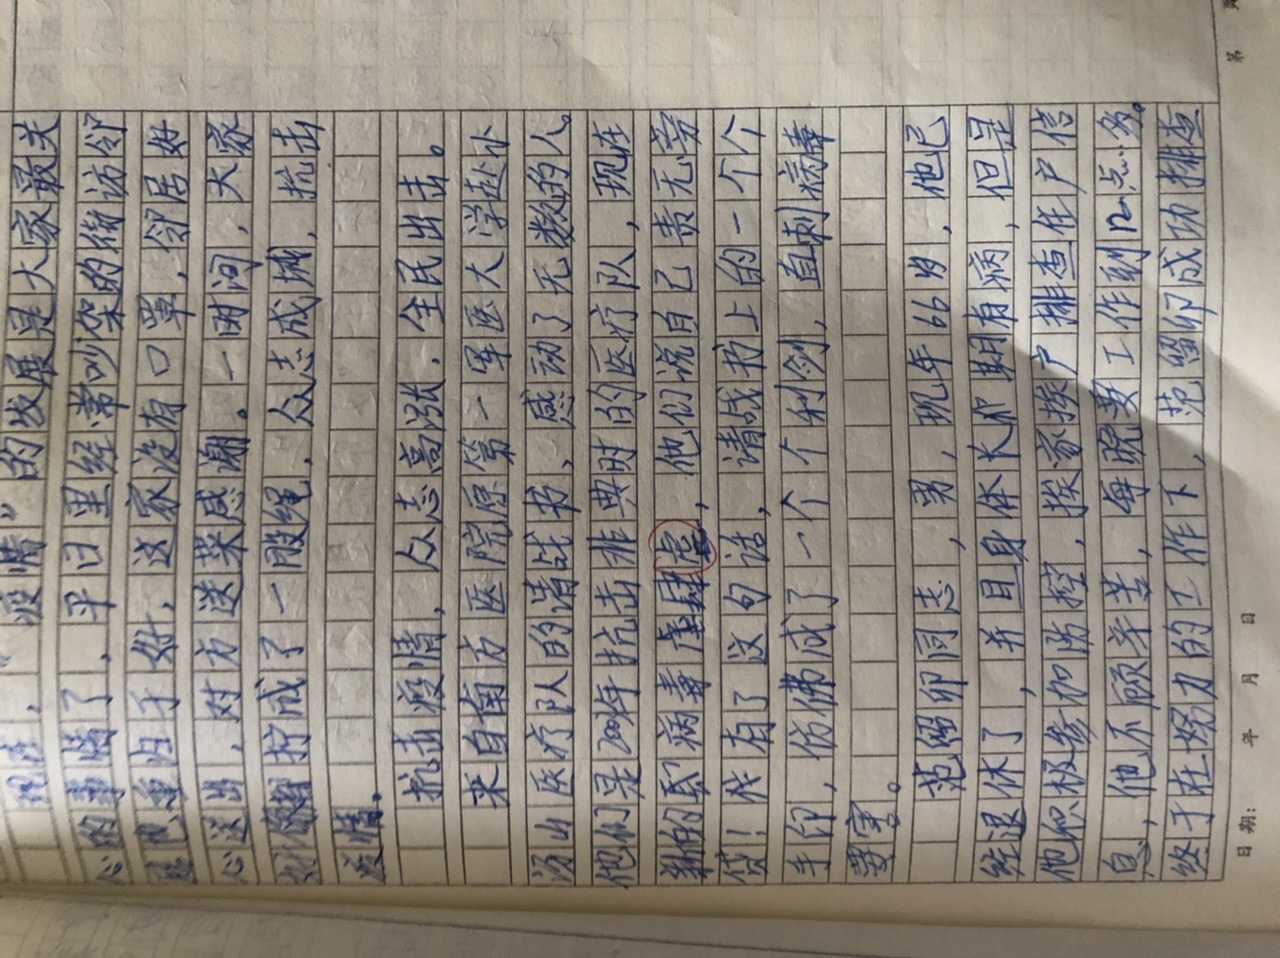 现在，“疫情”的发展是大家最关
心的事情了，平日里经常吵架的街访邻
居也重归于好，这家没有口罩，邻居好
心送出，对方送菜感谢。一时间，大家
好像拧成了一股绳，众志成城，抗击
疫情。
抗击疫情，众志高涨，全民出击。
来自南方医院原第一军医大学赴小
汤山医疗队的请战书，感动了无数的人。
他们是2003年抗击非典时的医疗队，现在
新的病毒肆虐，他们说自己责无旁
贷！伴有了这句话，请战书上的一个个
手印，仿佛成了一个个利剑，直刺病毒
要害。
范绍卯同志，男，现年66岁，他已
经退休了，并且身体长期有病，但是
他积极参加防控，挨家挨户排查住户信
息，他不顾辛苦，每晚要工作到12点多。
终于在努力的工作下，范绍卯成功排查
日期： 年 月 日
第